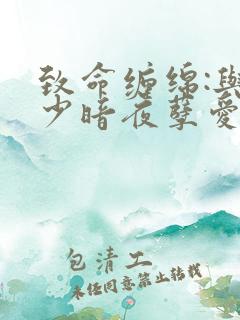 致命缠绵:与
少暗夜孽爱
包清工
未经同意禁止转载